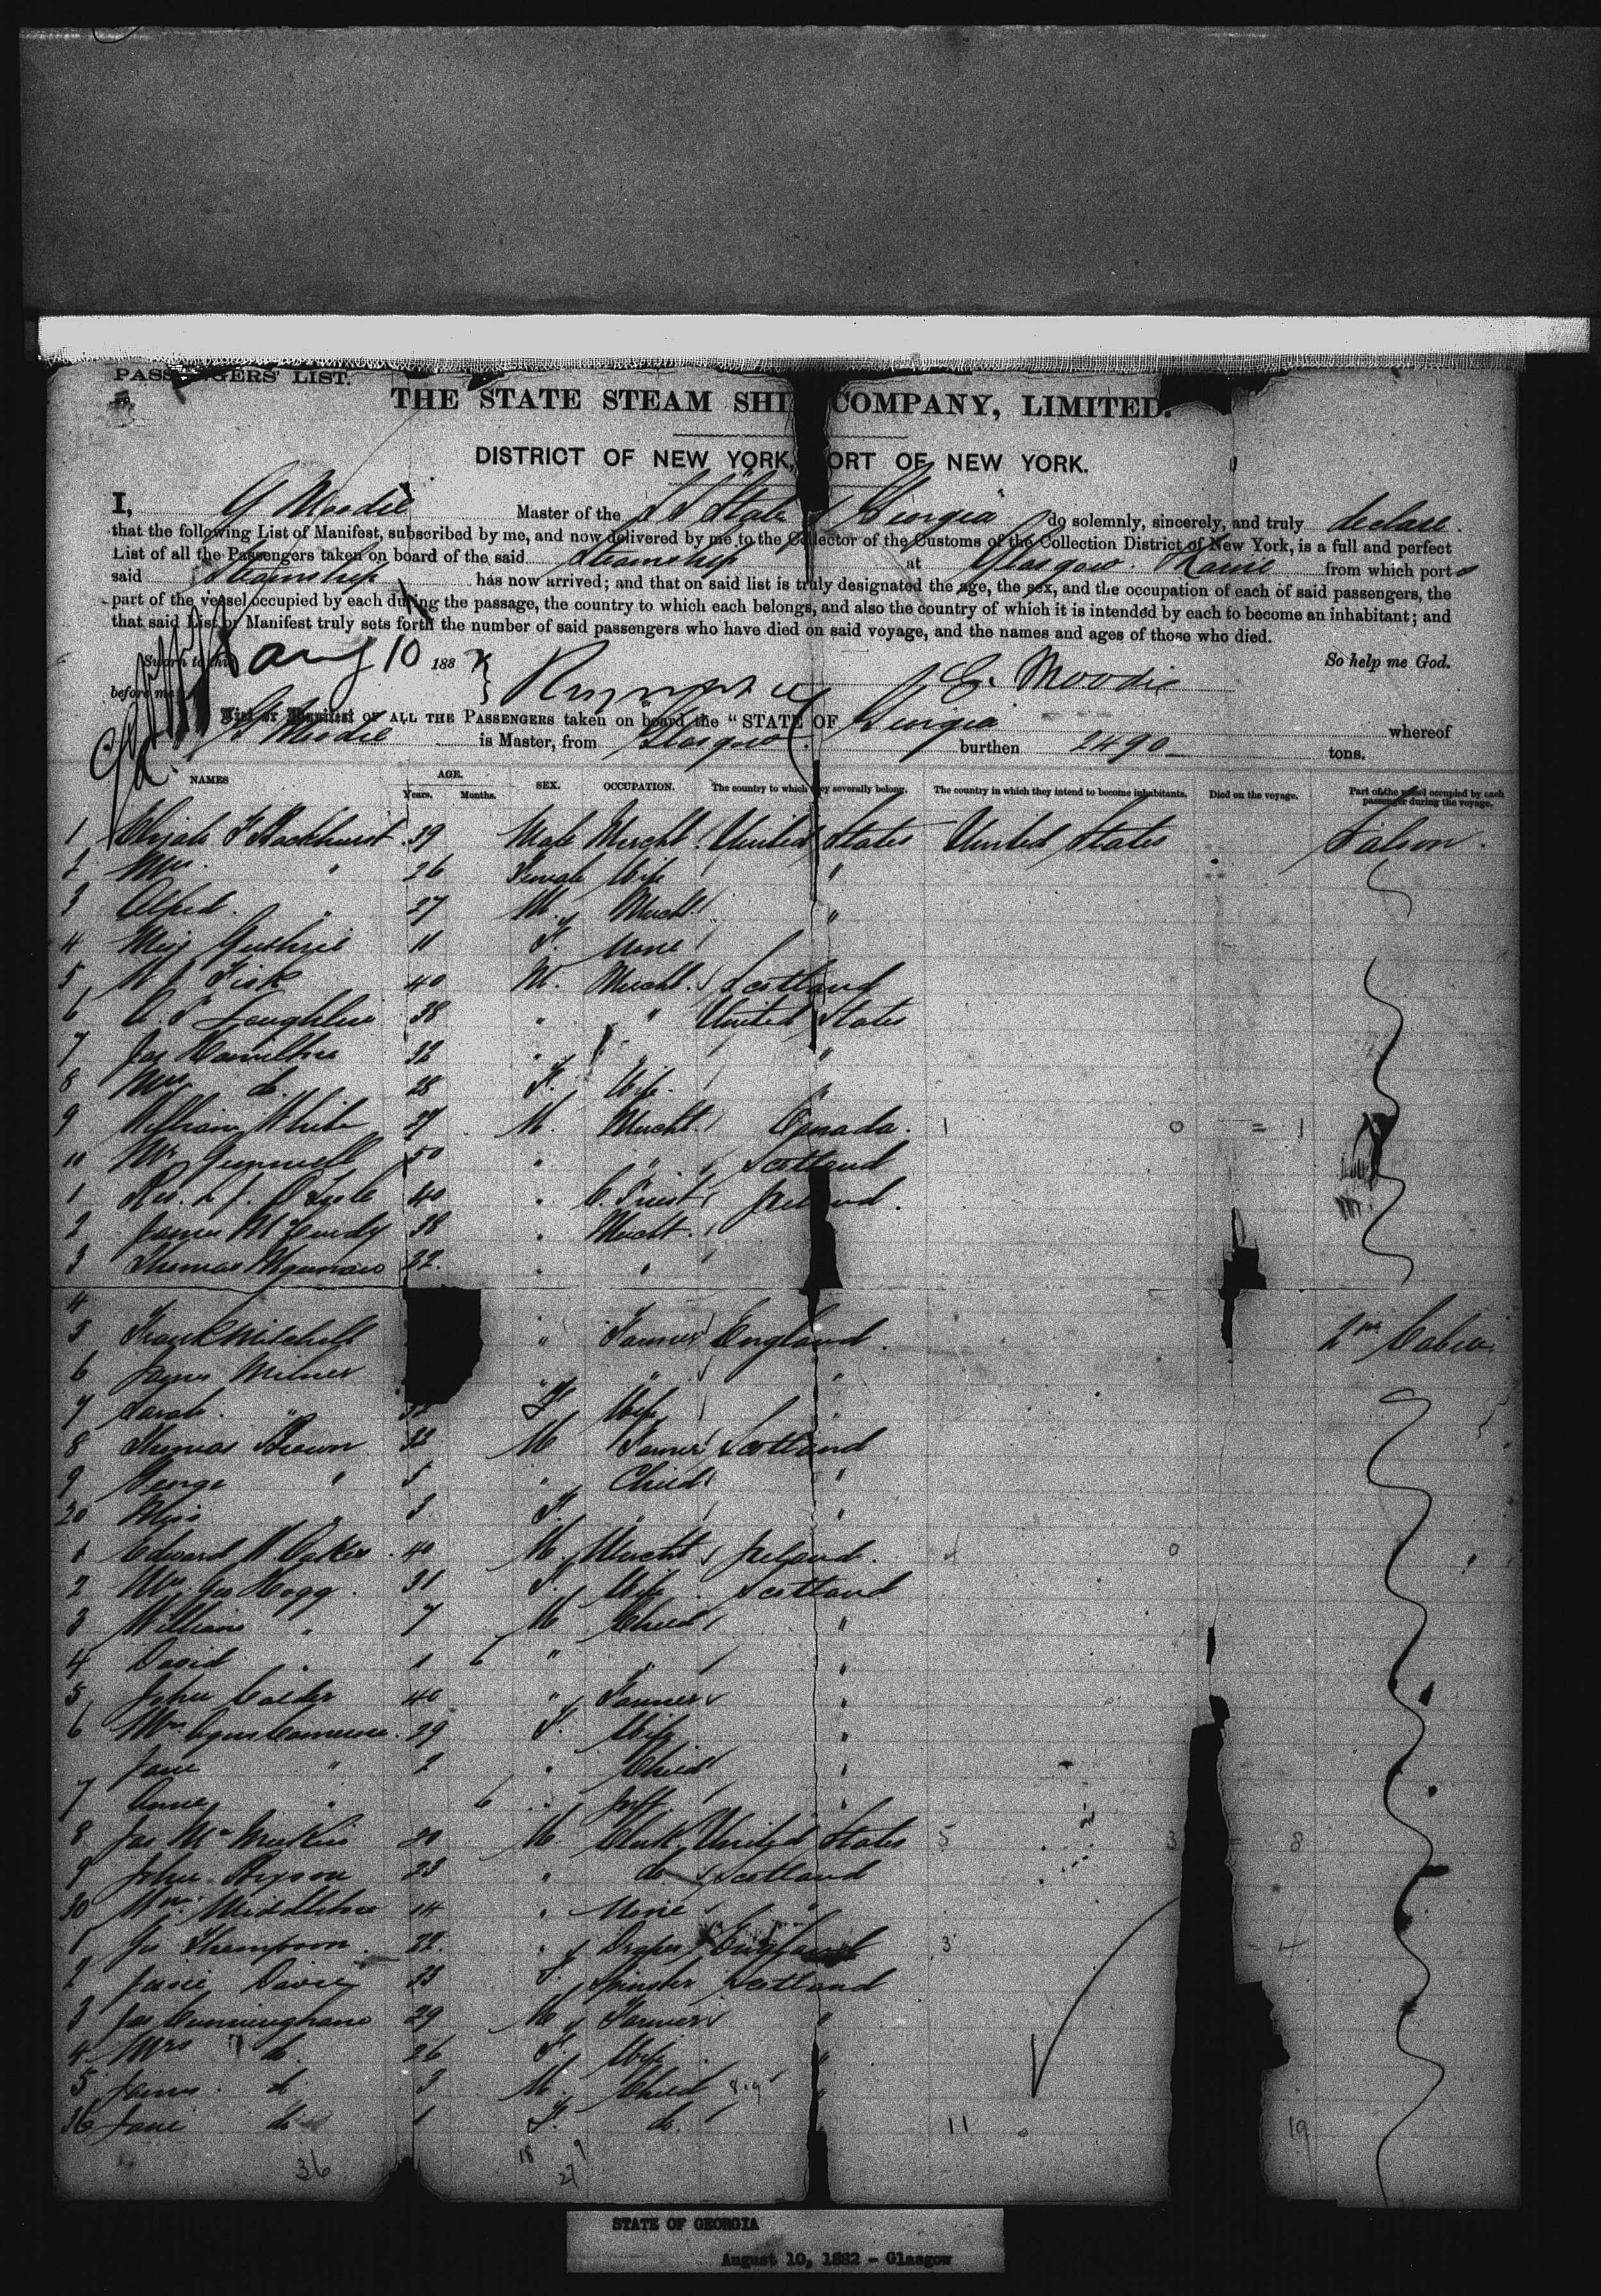 PASSENGERS' LIST.
THE STATE STEAM SHIP COMPANY, LIMITED.
DISTRICT OF NEW YORK, PORT OF NEW YORK.
I, G Moodie Master of the SS State of Georgia do solemnly, sincerely, and truly declare.
that the following List of Manifest, subscribed by me, and now delivered by me to the Collector of the Customs of the Collection District of New York, is a full and perfect
List of all the Passengers taken on board of the said Steamship at Glasgow. from which ports
said Steamship has now arrived; and that on said list is truly designated the age, the sex, and the occupation of each of said passengers, the
part of the vessel occupied by each during the passage, the country to which each belongs, and also the country of which it is intended by each to become an inhabitant; and
that said List or Manifest truly sets forth the number of said passengers who have died on said voyage, and the names and ages of those who died.
So help me God.
Sworn to this Aug 10 188
before me
Moodie
List or Manifest OF ALL THE PASSENGERS taken on board the "STATE OF Georgia whereof
G Moodie is Master, from Glasgow. burthen 2490 tons.
NAMES AGE. Years. Months. SEX. OCCUPATION. The country to which they severally belong. The country in which they intend to become inhabitants. Died on the voyage. Part of the vessel occupied by each passenger during the voyage.
1 Elijah F 39 Male Mercht United States United States Saloon.
2 Mrs " 26 Female Wife "
3 Alfred " 27 M. Mercht "
4 Miss Guthrie 11 F. None
5 Fisk 40 M. Mercht. Scotland
6 Loughlin 38 " " United States
7 Jas Hamilton 32 " " "
8 Mrs do. 28 F. Wife "
9 William White 27 M. Mercht. Canada. 1 0 = 1
10 Mr 50 " " Scotland
1 Rev. 40 " C. Priest Ireland.
2 James 38 " Mercht.
3 Thomas " "
4
5 Frank Mitchell " Farmer England. 2nd Cabin
6 James Milner " " "
7 Sarah " F Wife "
8 Thomas Brown 32 M Farmer Scotland
9 George " 5 " Child "
20 Miss " 3 F. " "
1 Edward 40 M. Mercht Ireland. 0
2 Mrs Hogg 31 F. Wife Scotland
3 William " 7 M Child "
4 David " 1 6 " " "
5 John Calder 40 " Farmer "
6 Mrs Agnes Cameron 29 F. Wife "
Jane " 2 " Child "
7 Anne " 6 " Inft. "
8 Jas 20 M. Clerk United States 5 3 = 8
9 John Bryson 23 " do Scotland
30 Wm. Middleton 14 " None "
1 Thompson " Draper England 3 = 4
2 Davie 33 F. Spinster Scotland
3 Jas Cunningham 29 M Farmer "
4 Mrs do. 26 F. Wife "
5 James do. 3 M. Child "
36 Jane do. 1 F. do. " 11 19
36 18 9
27
STATE OF GEORGIA
August 10, 1882 - Glasgow